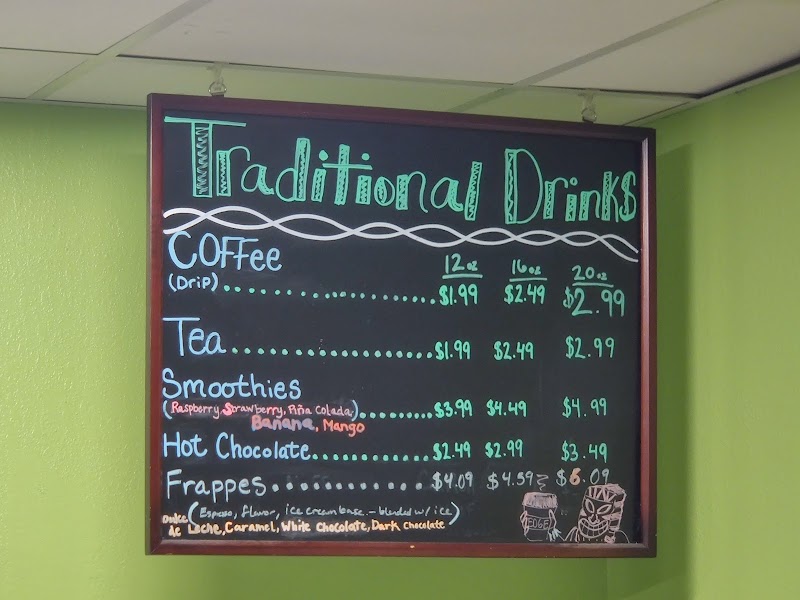 Traditional Drinks
12 oz 16 oz 20 oz
COFFee
(DriP)..................$1.99 $2.49 $2.99
Tea..................$1.99 $2.49 $2.99
Smoothies
(Raspberry, Strawberry, Piña Colada,)........$3.99 $4.49 $4.99
Banana, Mango
Hot Chocolate............$2.49 $2.99 $3.49
Frappes..............$4.09 $4.59 $6.09
(Espresso, flavor, ice cream base - blended w/ ice)
Dulce de Leche, Caramel, White Chocolate, Dark Chocolate
EDGE